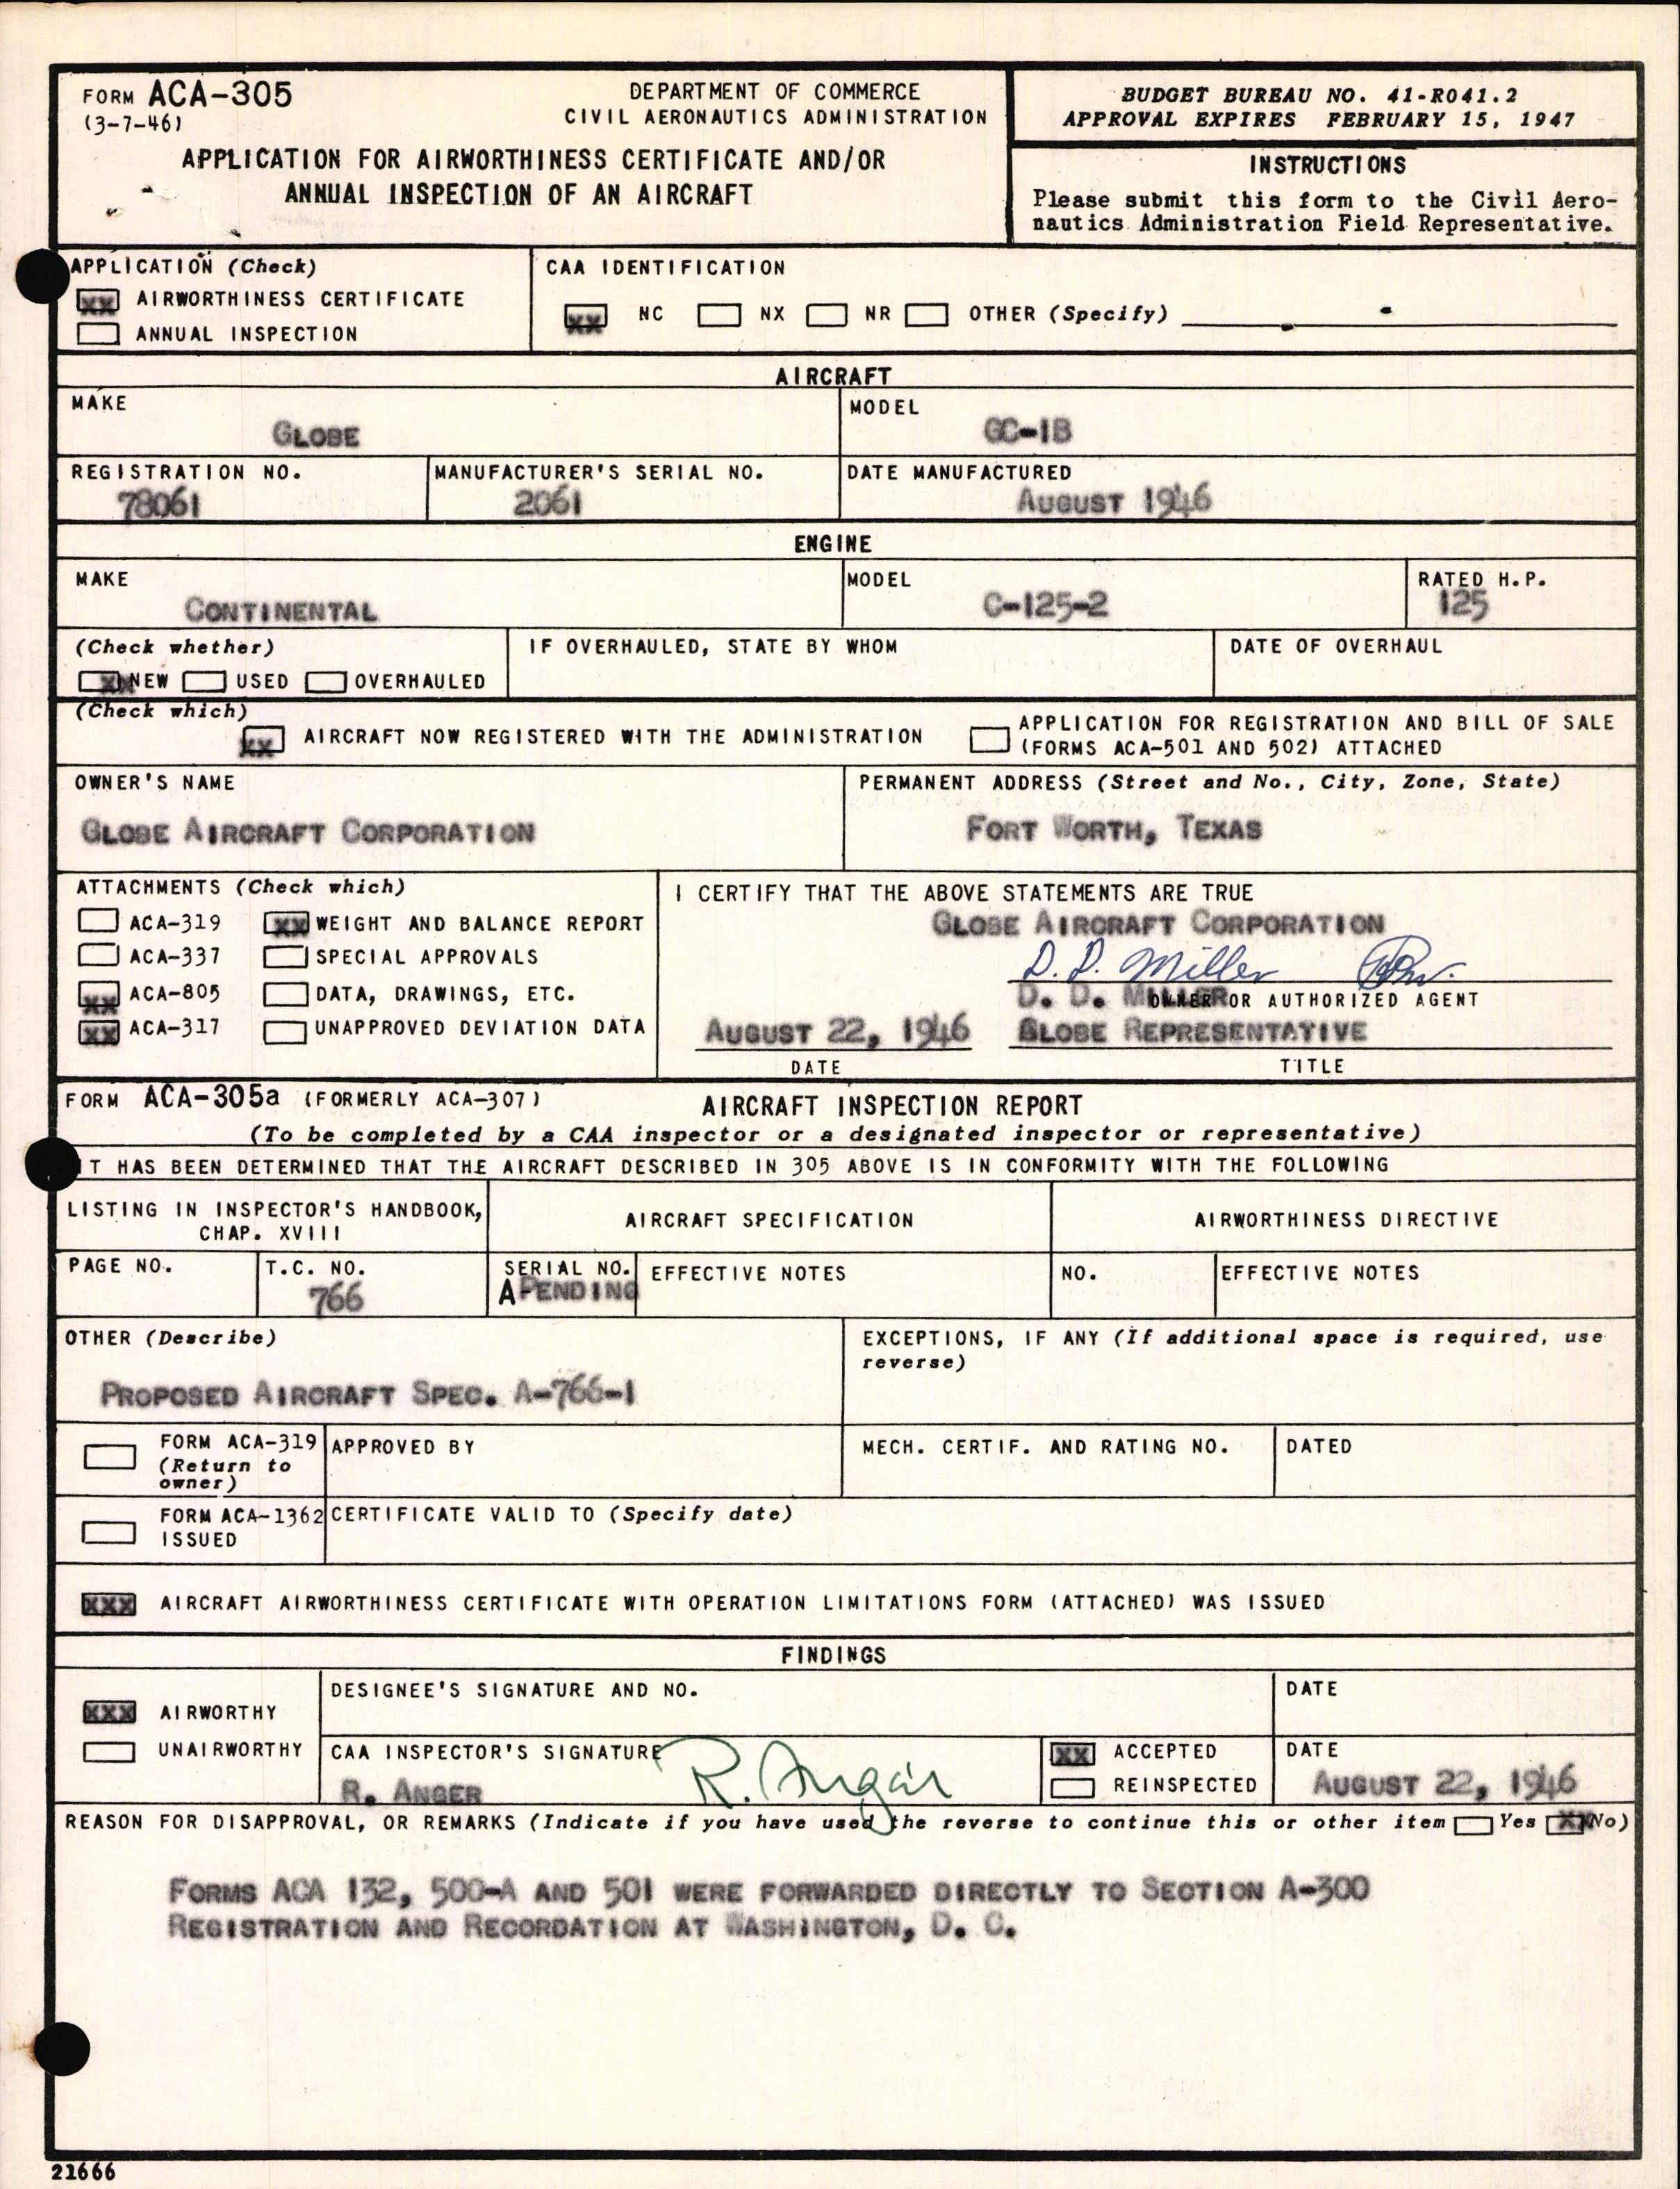 FORM ACA-305
(3-7-46)
DEPARTMENT OF COMMERCE
CIVIL AERONAUTICS ADMINISTRATION
APPLICATION FOR AIRWORTHINESS CERTIFICATE AND/OR
ANNUAL INSPECTION OF AN AIRCRAFT
BUDGET BUREAU NO. 41-R041.2
APPROVAL EXPIRES FEBRUARY 15, 1947
INSTRUCTIONS
Please submit this form to the Civil Aero-
nautics Administration Field Representative.
APPLICATION (Check)
XX AIRWORTHINESS CERTIFICATE
ANNUAL INSPECTION
CAA IDENTIFICATION
XX NC NX NR OTHER (Specify)
AIRCRAFT
MAKE
GLOBE
MODEL
GC-1B
REGISTRATION NO.
78061
MANUFACTURER'S SERIAL NO.
2061
DATE MANUFACTURED
AUGUST 1946
ENGINE
MAKE
CONTINENTAL
MODEL
C-125-2
RATED H.P.
125
(Check whether)
XX NEW USED OVERHAULED
IF OVERHAULED, STATE BY WHOM
DATE OF OVERHAUL
(Check which)
XX AIRCRAFT NOW REGISTERED WITH THE ADMINISTRATION
APPLICATION FOR REGISTRATION AND BILL OF SALE
(FORMS ACA-501 AND 502) ATTACHED
OWNER'S NAME
GLOBE AIRCRAFT CORPORATION
PERMANENT ADDRESS (Street and No., City, Zone, State)
FORT WORTH, TEXAS
ATTACHMENTS (Check which)
ACA-319 XX WEIGHT AND BALANCE REPORT
ACA-337 SPECIAL APPROVALS
XX ACA-805 DATA, DRAWINGS, ETC.
XX ACA-317 UNAPPROVED DEVIATION DATA
I CERTIFY THAT THE ABOVE STATEMENTS ARE TRUE
GLOBE AIRCRAFT CORPORATION
D. D. Miller
D. D. MILLER OWNER OR AUTHORIZED AGENT
AUGUST 22, 1946 GLOBE REPRESENTATIVE
DATE TITLE
FORM ACA-305a (FORMERLY ACA-307) AIRCRAFT INSPECTION REPORT
(To be completed by a CAA inspector or a designated inspector or representative)
IT HAS BEEN DETERMINED THAT THE AIRCRAFT DESCRIBED IN 305 ABOVE IS IN CONFORMITY WITH THE FOLLOWING
LISTING IN INSPECTOR'S HANDBOOK,
CHAP. XVIII
AIRCRAFT SPECIFICATION
AIRWORTHINESS DIRECTIVE
PAGE NO.
T.C. NO.
766
SERIAL NO.
A PENDING
EFFECTIVE NOTES
NO.
EFFECTIVE NOTES
OTHER (Describe)
PROPOSED AIRCRAFT SPEC. A-766-1
EXCEPTIONS, IF ANY (If additional space is required, use
reverse)
FORM ACA-319
(Return to
owner)
APPROVED BY
MECH. CERTIF. AND RATING NO.
DATED
FORM ACA-1362
ISSUED
CERTIFICATE VALID TO (Specify date)
XXX AIRCRAFT AIRWORTHINESS CERTIFICATE WITH OPERATION LIMITATIONS FORM (ATTACHED) WAS ISSUED
FINDINGS
XXX AIRWORTHY
UNAIRWORTHY
DESIGNEE'S SIGNATURE AND NO.
DATE
CAA INSPECTOR'S SIGNATURE
R. ANGER
R. Anger
XX ACCEPTED
REINSPECTED
DATE
AUGUST 22, 1946
REASON FOR DISAPPROVAL, OR REMARKS (Indicate if you have used the reverse to continue this or other item Yes XX No)
FORMS ACA 132, 500-A AND 501 WERE FORWARDED DIRECTLY TO SECTION A-300
REGISTRATION AND RECORDATION AT WASHINGTON, D. C.
21666